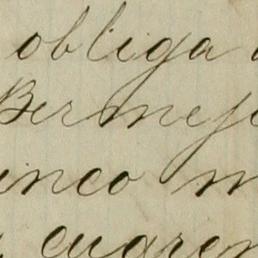 obliga
Bermejo
inco m
cuaren